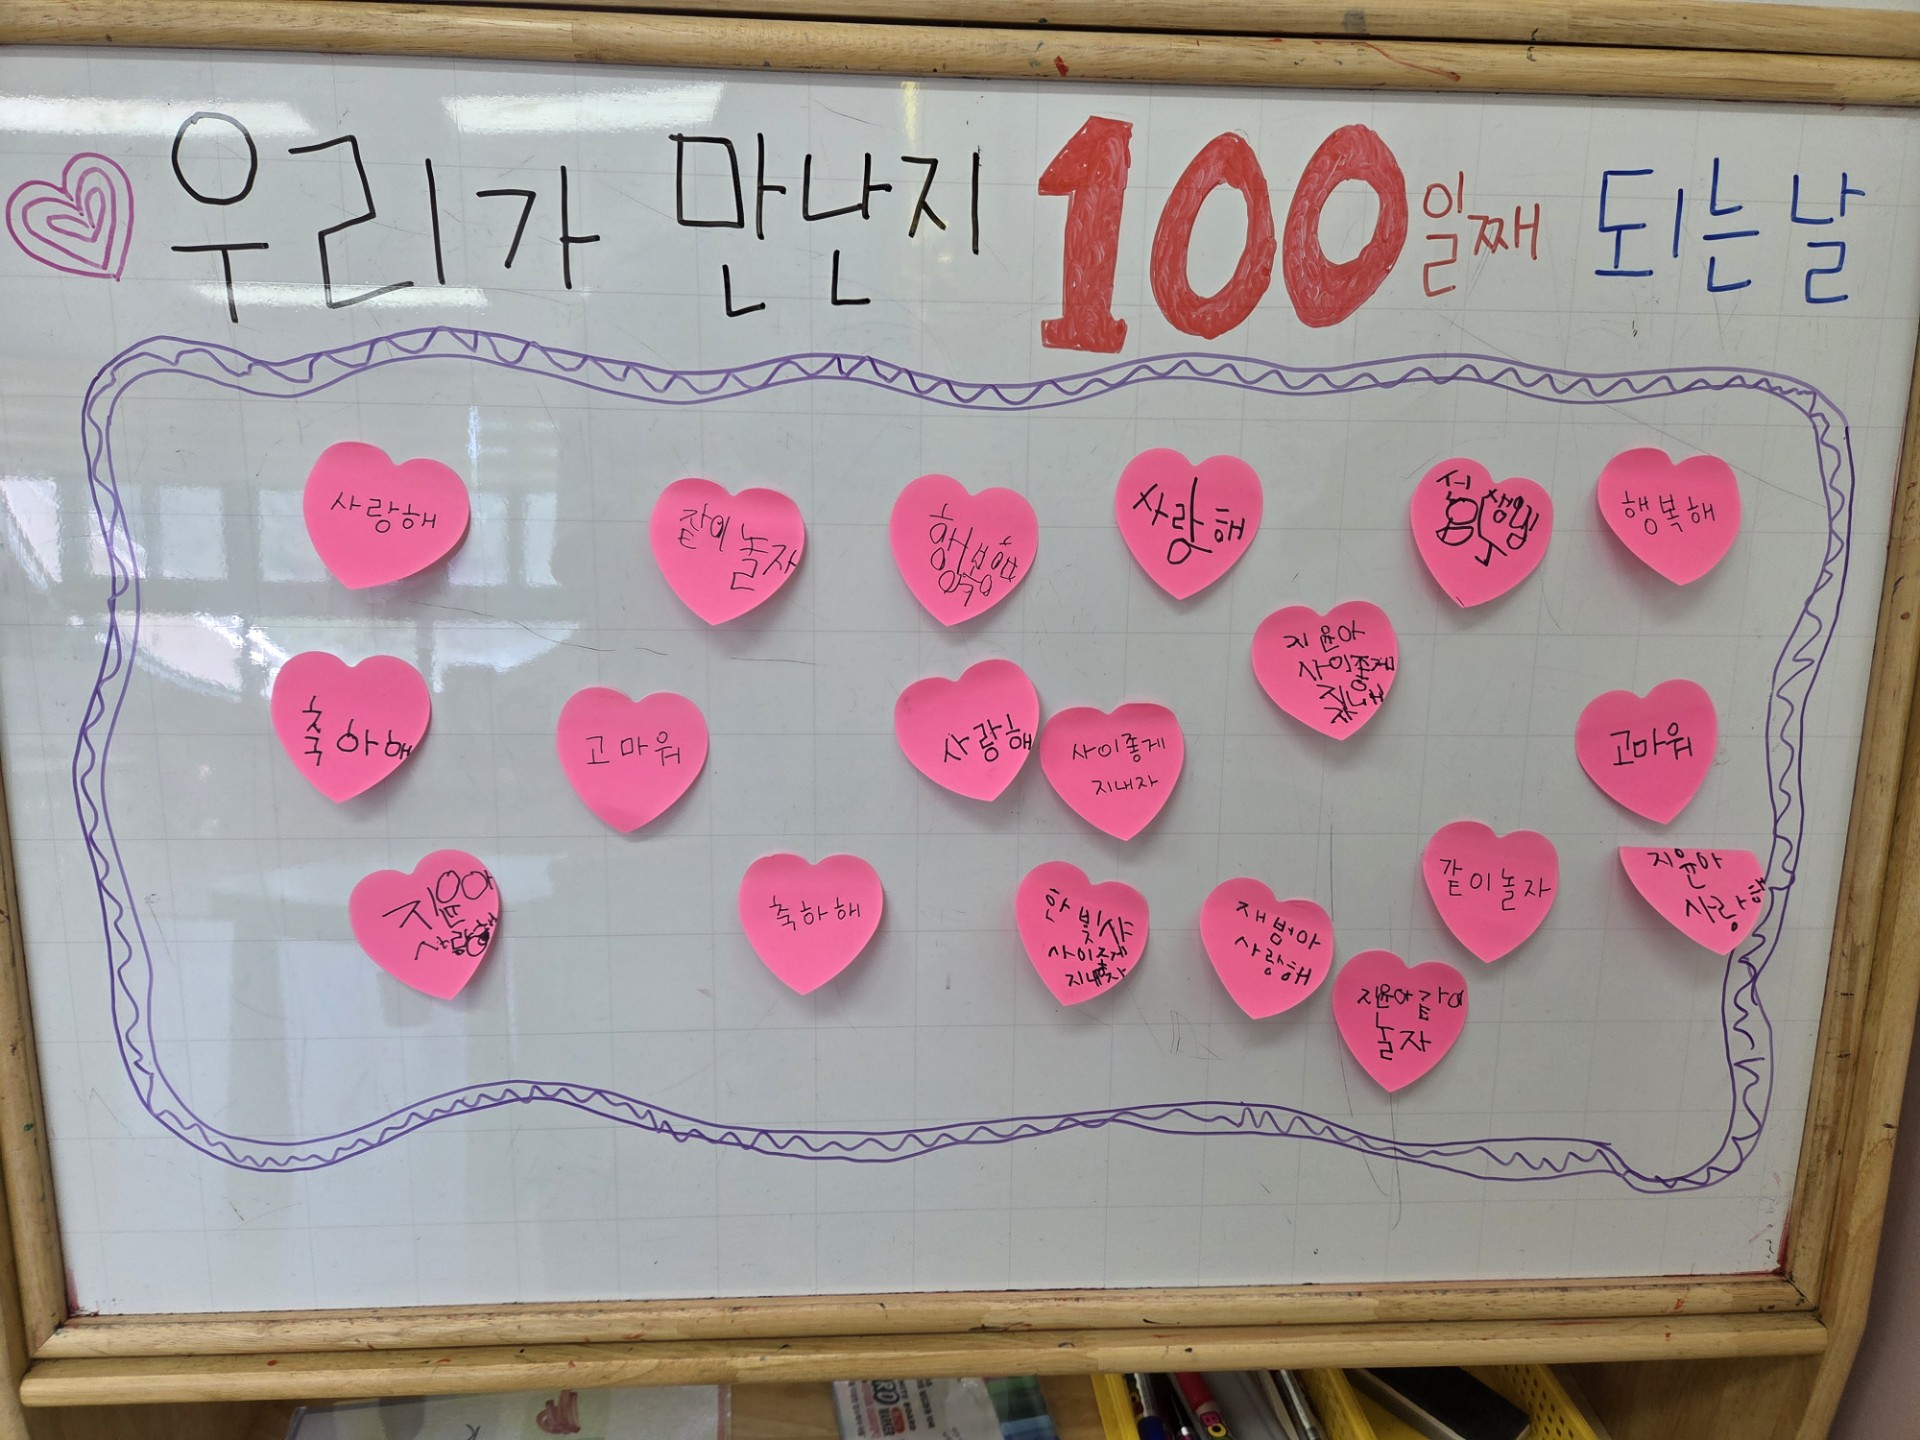 우리가 만난지 100일째 되는날
사랑해
같이 놀자
사랑해
선생님
행복해
지윤아
사이좋게
지내자
축하해
고마워
사랑해
사이좋게
지내자
고마워
지윤아
사랑해
축하해
한빛
사이좋게
지내자
재범아
사랑해
같이놀자
지윤아
사랑해
지윤아같이
놀자